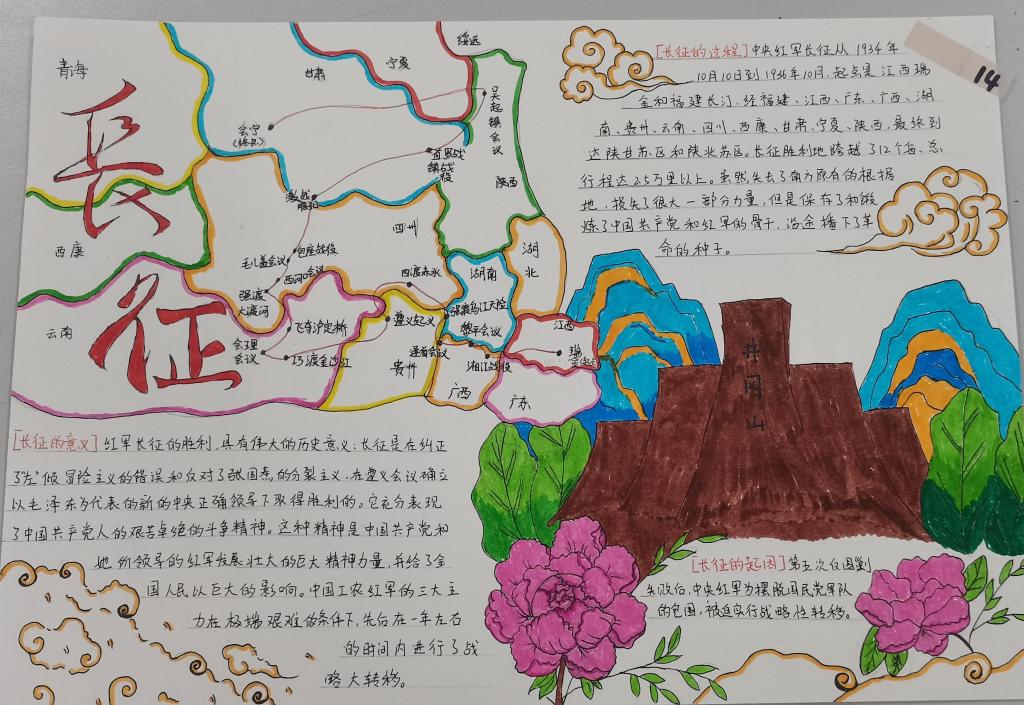 青海
甘肃
宁夏
绥远
吴起镇会议
会宁
(终点)
直罗战
镇战
役
陕西
激战
腊子口
四川
包座战役
毛儿盖会议
西河口会议
强渡
大渡河
西康
云南
飞夺泸定桥
会理
会议
巧渡金沙江
四渡赤水
遵义起义
贵州
湖南
强渡乌江天险
黎平会议
通道会议
湘江战役
湖北
江西
瑞
广西
广东
长
征
14
[长征的过程]中央红军长征从1934年
10月10日到1936年10月,起点是江西瑞
金和福建长汀,经福建、江西、广东、广西、湖
南、贵州、云南、四川、西康、甘肃、宁夏、陕西,最终到
达陕甘苏区和陕北苏区。长征胜利地跨越了12个省、总
行程达25万里以上。虽然失去了南方原有的根据
地,损失了很大一部分力量,但是保存了和锻
炼了中国共产党和红军的骨干,沿途播下了革
命的种子。
井冈山
[长征的意义]红军长征的胜利,具有伟大的历史意义:长征是在纠正
了"左"倾冒险主义的错误和反对了张国焘的分裂主义,在遵义会议确立
以毛泽东为代表的新的中央正确领导下取得胜利的。它充分表现
了中国共产党人的艰苦卓绝的斗争精神。这种精神是中国共产党和
她所领导的红军发展壮大的巨大精神力量,并给了全
国人民以巨大的影响。中国工农红军的三大主
力在极端艰难的条件下,先后在一年左右
的时间内进行了战
略大转移。
[长征的起因]第五次反围剿
失败后,中央红军为摆脱国民党军队
的包围,被迫实行战略性转移。